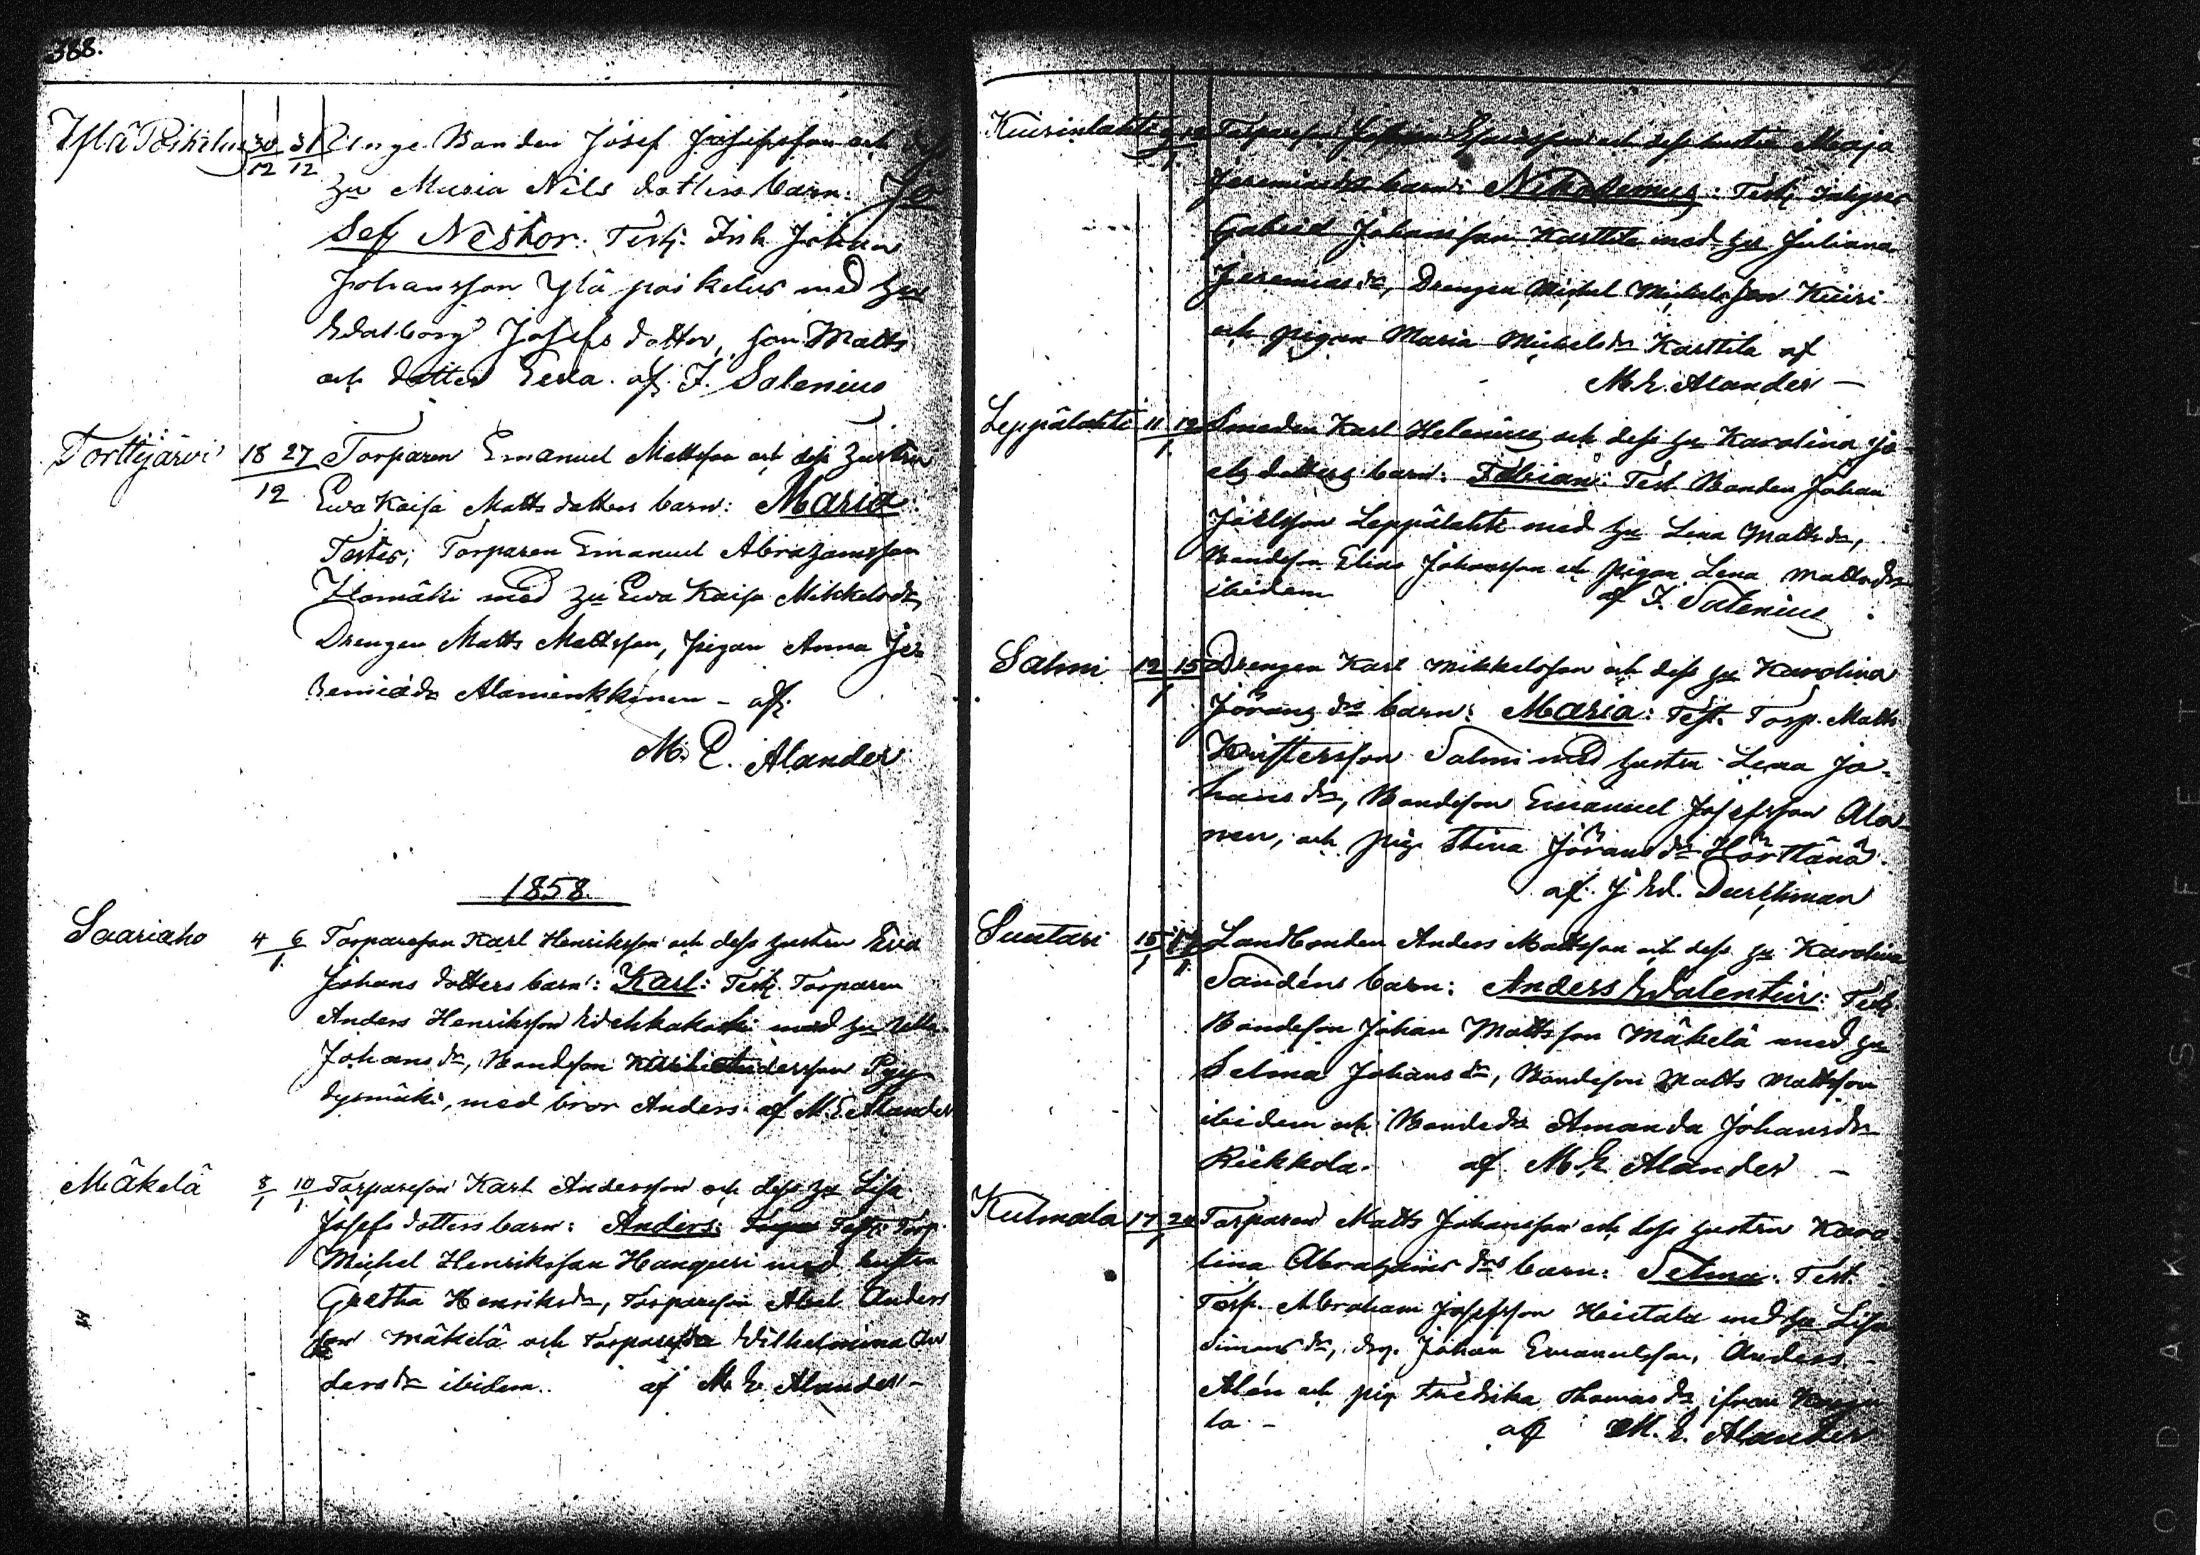 388.
Ylä Poikelus 30/12 31/12 Unge Bonden Josef Josefsson och dess
hu Maria Nils dotters barn: Jo
sef Nestor: Test: Inh Johan
Johansson Ylä poikelus med hu
Walborg Josefs dotter, son Matts
och dotter Eva. af. F. Salenius
Torttijärvi 18 27/12 Torparen Emanuel Mattsson och dess hustru
Ewa Kaisa Matts dotters barn: Maria:
Testes; Torparen Emanuel Abrahamsson
med hu Ewa Kaisa Mikkelsdr,
Drengen Matts Mattsson, pigan Anna Je
remiædr Alaminkkinen - af
M. E. Alander
1858.
Saariaho 4 6/1 Torpareson Karl Henriksson och dess hustru Eva
Johans dotters barn: Karl: Test: Torparen
Anders Henriksson Wehkakoski med hu Ulla
Johansdr, Bondeson Andersson Pyy
dysmäki, med bror Anders. af M. E Alander
Mäkelä 8/1 10/1 Torpareson Karl Andersson och dess hu Lisa
Josefs dotters barn: Anders: Test: Torp.
Michel Henriksson Hangveri med hustru
Gretha Henriksdr, Torpareson Abel Anders
son Mäkelä och Torparedr Wilhelmina An
dersdr ibidem. af M. E. Alander -
Kuirinlahti 9 12/1 Torpareson och dess hustru Maja
Jeremiædrs barn: Nikodemus: Test:
Gabriel Johansson Karttila med hu Juliana
Jeremiædr, Drengen Michel Mickelsson Kuiri
och pigan Maria Mickelsdr Karttila af
M. E. Alander -
Leppälahti 11 12/1 Smeden Karl Helenius och dess hu Karolina Jo
els dotters barn: Fabian: Test Bonden Johan
Joelsson Leppälahti med hu Lena Mattsdr,
Bondeson Elias Johansson och pigan Lena Mattsdr
ibidem af F. Salenius
Salmi 12 15/1 Drengen Karl Mikkelsson och dess hu Karolina
Jörans drs barn: Maria: Test. Torp. Matts
Kristersson Salmi med hustru Lena Jo-
hansdr, Bondeson Emanuel Josefsson Ala
nen, och pig. Stina Jöransdr Hörttänä.
af. J Ed. Durchman
Suntari 15/1 17/1 Landbonden Anders Mattsson och dess hu Karolina
Sandéns barn: Anders Walentin: Test
Bondeson Johan Mattsson Mäkelä med hu
Selma Johansdr, Bondeson Matts Mattsson
ibidem och Bondedr Amanda Johansdr
Riekkola. af M. E. Alander -
Kulmala 17 24/1 Torparen Matts Johansson och dess hustru Karo
lina Abrahams drs barn: Selma: Test.
Torp. Abraham Josefsson Heistala med hu Lisa
Simonsdr, drg. Johan Emanuelsson, Anders
Alén och pig Fredrika Thomasdr ifran
la - af M. E. Alander